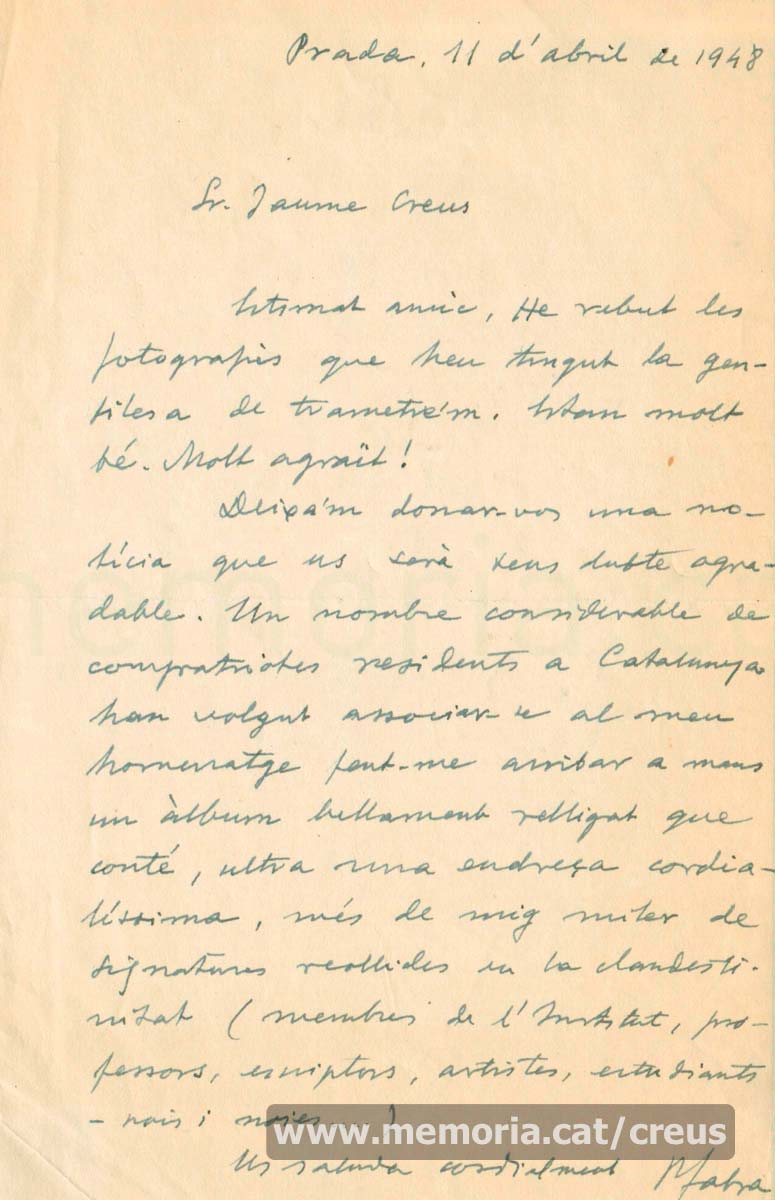 Prada, 11 d'abril de 1948
Sr. Jaume Creus
Estimat amic, He rebut les
fotografies que heu tingut la gen-
tilesa de trametre'm. Estan molt
bé. Molt agraït!
Deixa'm donar-vos una no-
tícia que us serà sens dubte agra-
dable. Un nombre considerable de
compatriotes residents a Catalunya
han volgut associar-se al meu
homenatge fent-me arribar a mans
un àlbum bellament relligat que
conté, ultra una endreça cordia-
líssima, més de mig miler de
signatures recollides en la clandesti-
nitat (membres de l'Institut, pro-
fessors, escriptors, artistes, estudiants
- nois i noies...)
www.memoria.cat/creus
Us saluda cordialment P. Fabra
memoria